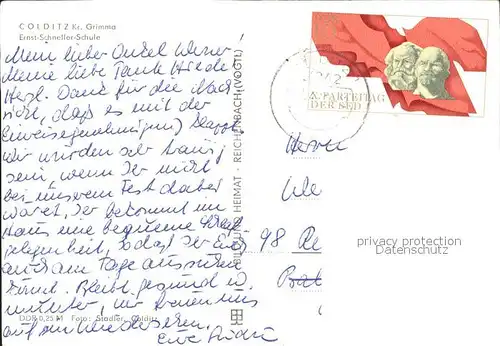 COLDITZ Kr. Grimma
Ernst-Schneller-Schule
Mein lieber Onkel Werner
Meine liebe Tante Friede
Herzl. Dank für die Nach
richt, daß es mit der
Einreisegenehmigung klappt
Wir würden sehr traurig
sein, wenn Ihr nicht
bei unserem Fest dabei
wäret, Ihr bekommt im
Haus eine bequeme
gelegenheit, so daß Ihr Euch
auch am Tage ausruhen
könnt. Bleibt gesund u.
munter, wir freuen uns
auf ein Wiedersehen.
Eure
DDR 0,25 M Foto: Stadler, Colditz
BILD UND HEIMAT · REICHENBACH (VOGTL)
X. PARTEITAG
DER SED
Herrn
98 Re
privacy protection
Datenschutz